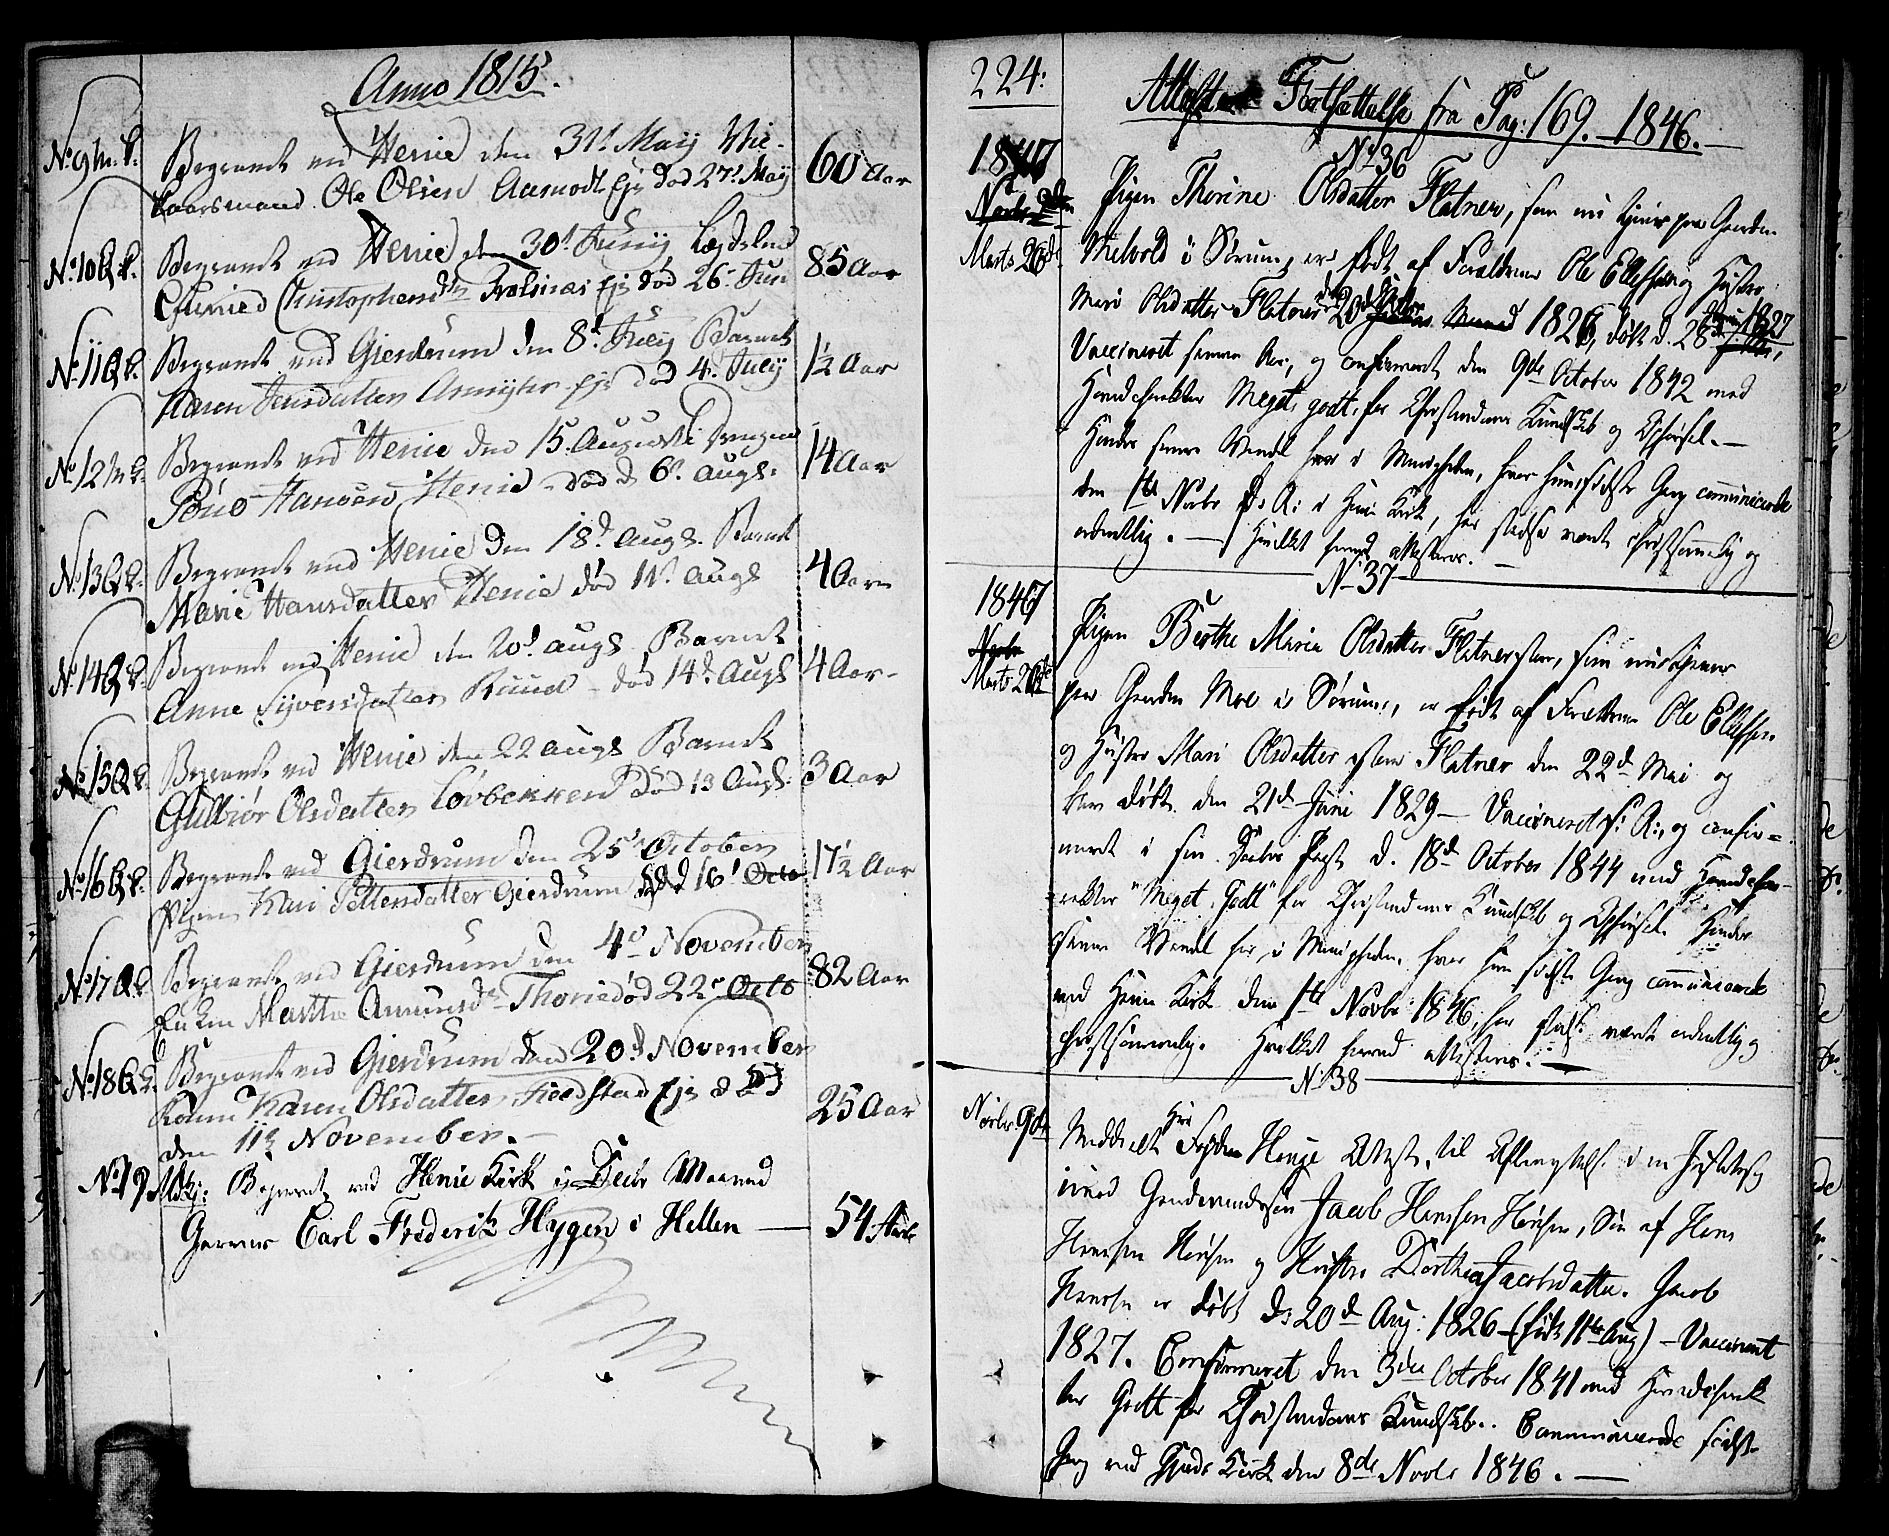 Anno 1815.
No 9 M.k. Begravet ved Henie den 31t May Vie-
kaarsmand Ole Olsen Aamodt Eje død 27t May 60 Aar
No 10 Q.k. Begravet ved Henie den 30t Junij Lægdslem
Chrined Christophersdtr Trolsnæs Eje død 26 Jun 85 Aar
No 11 Q.k. Begravet ved Gierdrum den 8d July Barnet
Karen Jensdatter Eje død 4d July 1½ Aar
No 12 M.k. Begravet ved Henie den 15 Augusti Drengen
Hansen Henie død d 6t Augs: 14 Aar
No 13 Q.k. Begravet ved Henie den 18d Augs. Barnet
Marie Hansdatter Henie død 11t Augs 4 Aar
No 14 Q.k. Begravet ved Henie den 20d augs Barnet
Anne Syversdatter Ruud død 14d Augs 4 Aar
No 15 Q.k. Begravet ved Henie den 22 augs Barnet
Gulbiør Olsdatter Løvbekken død 13 Augs: 3 Aar
No 16 Q.k. Begravet ved Gierdrum den 25d October
Pigen Kari Pettersdatter Gierdrum død d 16t Octo 17½ Aar
No 17 Q.k. Begravet ved Gierdrum den 4d November
Enken Marthe Amundsdr Thorie død 22d Octo 82 Aar
No 18 Q.k. Begravet ved Gierdrum den 20d November
Konen Karen Olsdatter Fieldstad Eje død
den 11t November. 25 Aar
No 19 M.k: Begravet ved Henie Kirk i Decbr Maaned
Garver Carl Frederik Hygen i Hellen — 54 Aar
224:
Attester Fortsættelse fra Pag: 169. — 1846.
No 36
1847
Marts 26de
Pigen Thorine Olsdatter Flatner, som nu tjener paa Gaarden
Melvold i Sørum, er født af Forældrene Ole Ellefsen og Hustru
Mari Olsdatter Flatner d. 20de 1826, døbt d. 28de 1827
Vaccineret samme Aar, og confirmeret den 9de October 1842 med
Hovedcharakter Meget godt for Christendoms Kundskab og Opførsel. —
Hendes senere Vandel her i Menigheden, hvor hun sidste Gang communicerede
den 1ste Novbr d: A: i Heni Kirk, har stedse været christsømmelig og
ordentlig. — Hvilket herved attesteres. —
No 37
1847
Marts 26de
Pigen Berthe Maria Olsdatter Flatner, som nu tjener
paa Gaarden Moe i Sørum, er født af Forældrene Ole Ellefsen
og Hustru Mari Olsdatter Flatner den 22de Mai og
døbt den 21de Juni 1829 — Vaccineret s: A:, og confir=
meret i sin Daabs Pagt d. 18de October 1844 med Hovedcha-
rakter "Meget Godt" for Christendoms Kundskab og Opførsel. Hendes
senere Vandel her i Menigheden, hvor hun sidste Gang communicerede
ved Heni Kirk den 1ste Novbr 1846, har stedse været ordentlig og
christsømmelig. Hvilket herved attesteres. —
No 38
Novbr 9de
Meddeelt Hr Fogden Attest, til Afbenyttelse i en Justitssag
imod Gaardmandssøn Jacob Hansen, Søn af Hans
Hansen og Hustru Dorthea Jacobsdatter. Jacob
Hansen er døbt d: 20de Aug: 1826 — (født 11te Aug) — Vaccineret
1827. Confirmeret den 3die October 1841 med Hovedcharak
ter Godt for Christendoms Kundskab. Communicerede sidste
Gang ved Kirk den 8de Novbr 1846. —